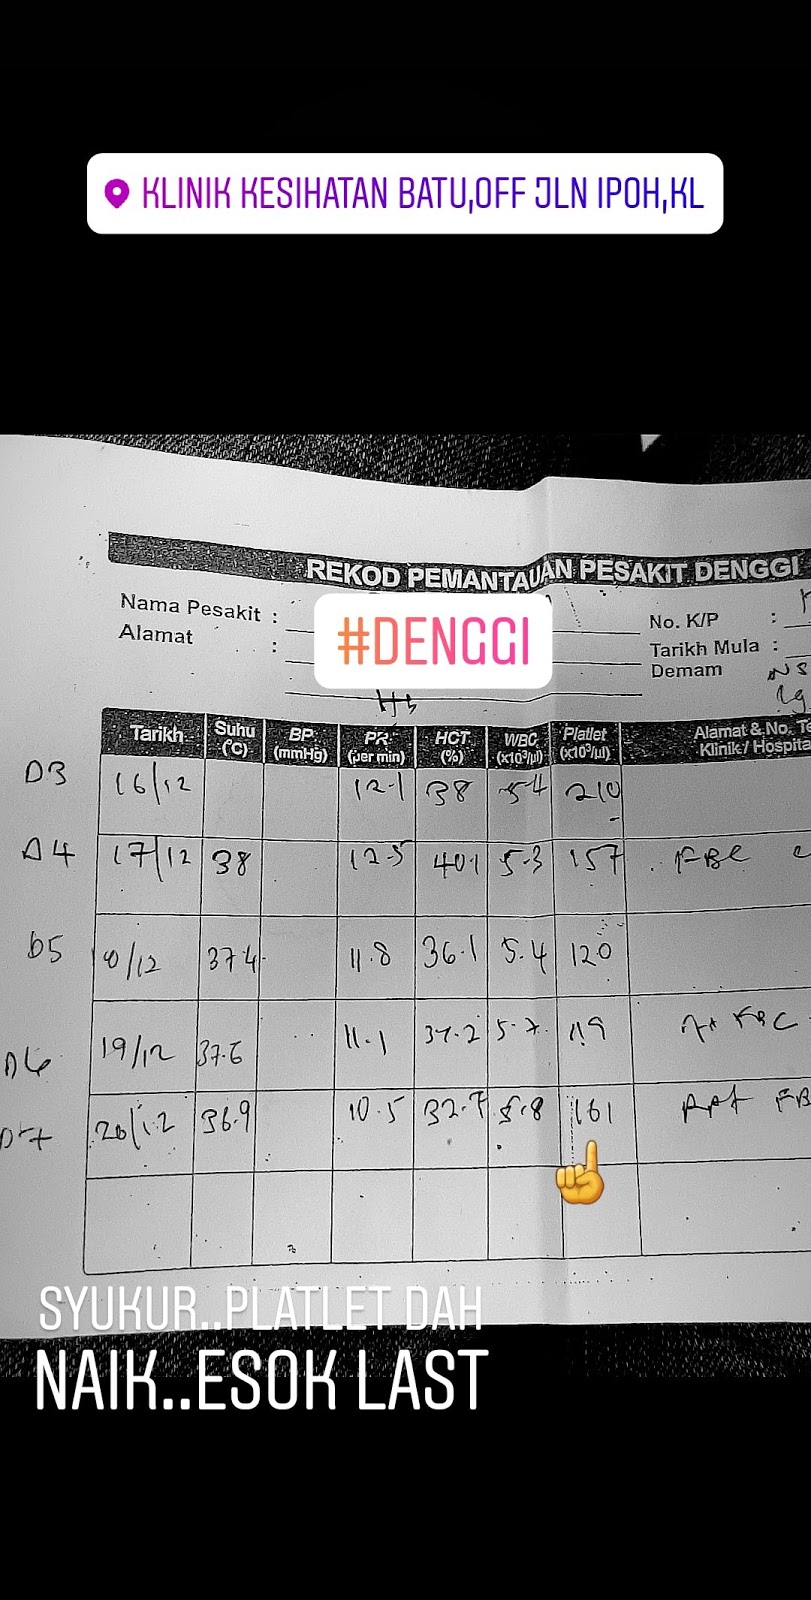 KLINIK KESIHATAN BATU,OFF JLN IPOH,KL
REKOD PEMANTAUAN PESAKIT DENGGI
Nama Pesakit :
No. K/P :
Alamat :
#DENGGI
Tarikh Mula :
Demam
NS
Ig
Hb
Tarikh Suhu (°C) BP (mmHg) PR (per min) HCT (%) WBC (x10³/µl) Platlet (x10³/µl) Alamat & No. Te Klinik / Hospita
D3 16/12 12.1 38 5.4 210
D4 17/12 38 12.5 40.1 5.3 157 FBC
D5 /12 37.4 11.8 36.1 5.4 120
D6 19/12 37.6 11.1 5.7 119 FBC
D7 20/12 36.9 10.5 32.7 5.8 161 FB
SYUKUR..PLATLET DAH
NAIK..ESOK LAST